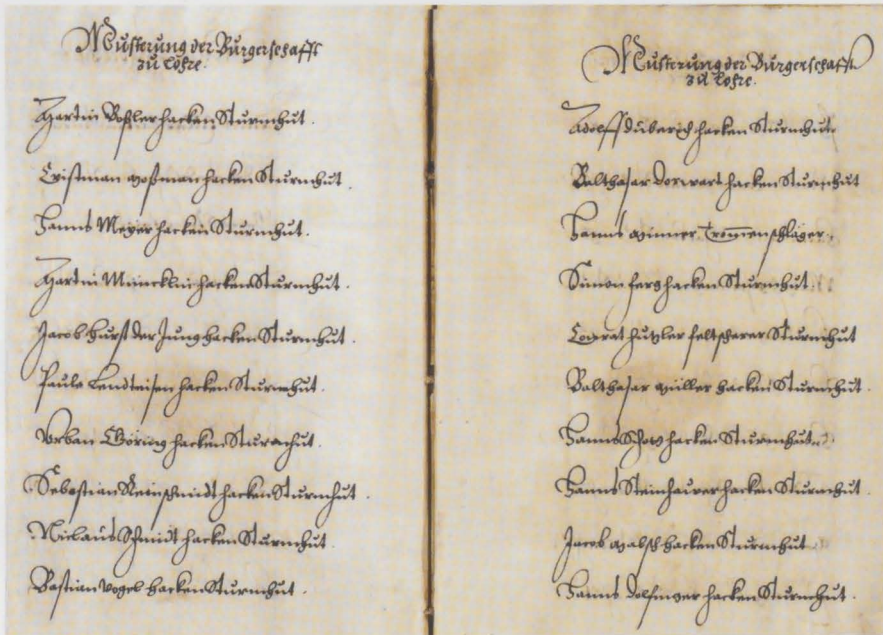 Musterung der Burgerschafft
zu Lohre.
Martin Boßler hacken Sturmhut.
Cristman hacken Sturmhut.
Hanns Meyer hacken Sturmhut.
Martin Müncklin hacken Sturmhut.
Jacob Hurst der Jung hacken Sturmhut.
Paule Lendeisen hacken Sturmhut.
Vrban Göring hacken Sturmhut.
Sebastian Reinschmidt hacken Sturmhut.
Niclaus Schmidt hacken Sturmhut.
Bastian Vogel hacken Sturmhut.
Musterung der Burgerschafft
zu Lohre.
Adolff hacken Sturmhut.
Balthasar Dorwart hacken Sturmhut
Hanns Tromenschlager.
Simon ferg hacken Sturmhut.
Conrat Hutzler feltscherer Sturmhut
Balthasar Miller hacken Sturmhut.
Hanns hacken Sturmhut.
Hanns Steinhauer hacken Sturmhut.
Jacob hacken Sturmhut.
Hanns Dolfinger hacken Sturmhut.